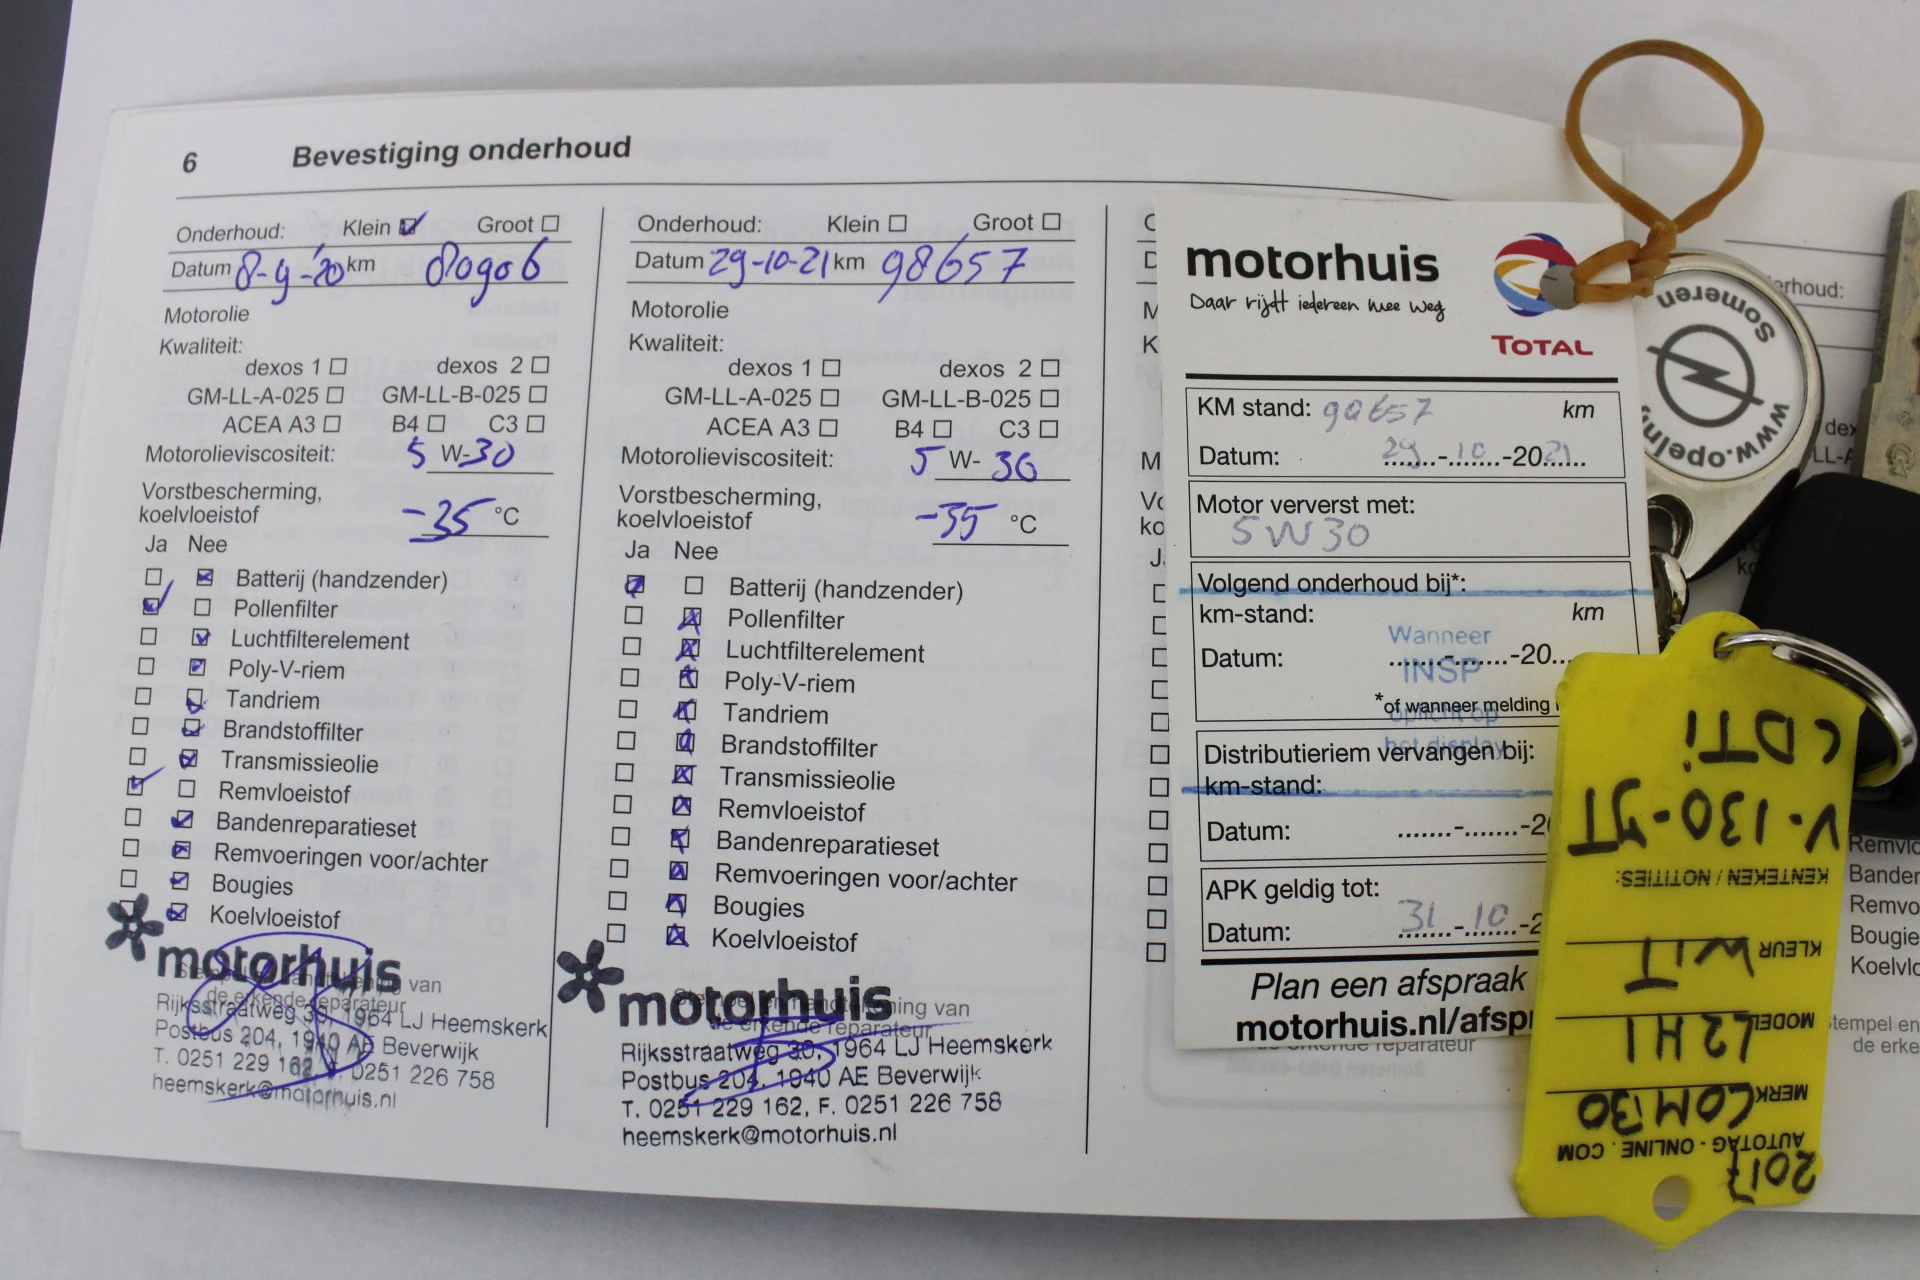 6 Bevestiging onderhoud
Onderhoud: Klein Groot
Datum 8-9-'20 km 80906
Motorolie
Kwaliteit:
dexos 1 dexos 2
GM-LL-A-025 GM-LL-B-025
ACEA A3 B4 C3
Motorolieviscositeit: 5 W-30
Vorstbescherming,
koelvloeistof -35 °C
Ja Nee
Batterij (handzender)
Pollenfilter
Luchtfilterelement
Poly-V-riem
Tandriem
Brandstoffilter
Transmissieolie
Remvloeistof
Bandenreparatieset
Remvoeringen voor/achter
Bougies
Koelvloeistof
motorhuis
Stempel en handtekening van
de erkende reparateur
Rijksstraatweg 30, 1964 LJ Heemskerk
Postbus 204, 1940 AE Beverwijk
T. 0251 229 162, F. 0251 226 758
heemskerk@motorhuis.nl
Onderhoud: Klein Groot
Datum 29-10-21 km 98657
Motorolie
Kwaliteit:
dexos 1 dexos 2
GM-LL-A-025 GM-LL-B-025
ACEA A3 B4 C3
Motorolieviscositeit: 5 W- 30
Vorstbescherming,
koelvloeistof -35 °C
Ja Nee
Batterij (handzender)
Pollenfilter
Luchtfilterelement
Poly-V-riem
Tandriem
Brandstoffilter
Transmissieolie
Remvloeistof
Bandenreparatieset
Remvoeringen voor/achter
Bougies
Koelvloeistof
motorhuis
Stempel en handtekening van
de erkende reparateur
Rijksstraatweg 30, 1964 LJ Heemskerk
Postbus 204, 1940 AE Beverwijk
T. 0251 229 162, F. 0251 226 758
heemskerk@motorhuis.nl
motorhuis
Daar rijdt iedereen mee weg
TOTAL
KM stand: 98657 km
Datum: 29-10-2021
Motor ververst met:
5W30
Volgend onderhoud bij*:
km-stand: km
Wanneer
Datum: .......-.......-20...
INSP
*of wanneer melding
oplicht op
het display
Distributieriem vervangen bij:
km-stand:
Datum: .......-.......-2
APK geldig tot:
Datum: 31-10-2
Plan een afspraak
motorhuis.nl/afspr
de erkende reparateur
Someren
www.opeln
CDTi
V-130-JT
KENTEKEN / NOTITIES:
KLEUR WIT
MODEL L2H1
MERK COMBO
AUTOTAG-ONLINE.COM
2017
erhoud:
dex
Remvlo
Banden
Remvo
Bougie
Koelvlo
tempel en
de erke